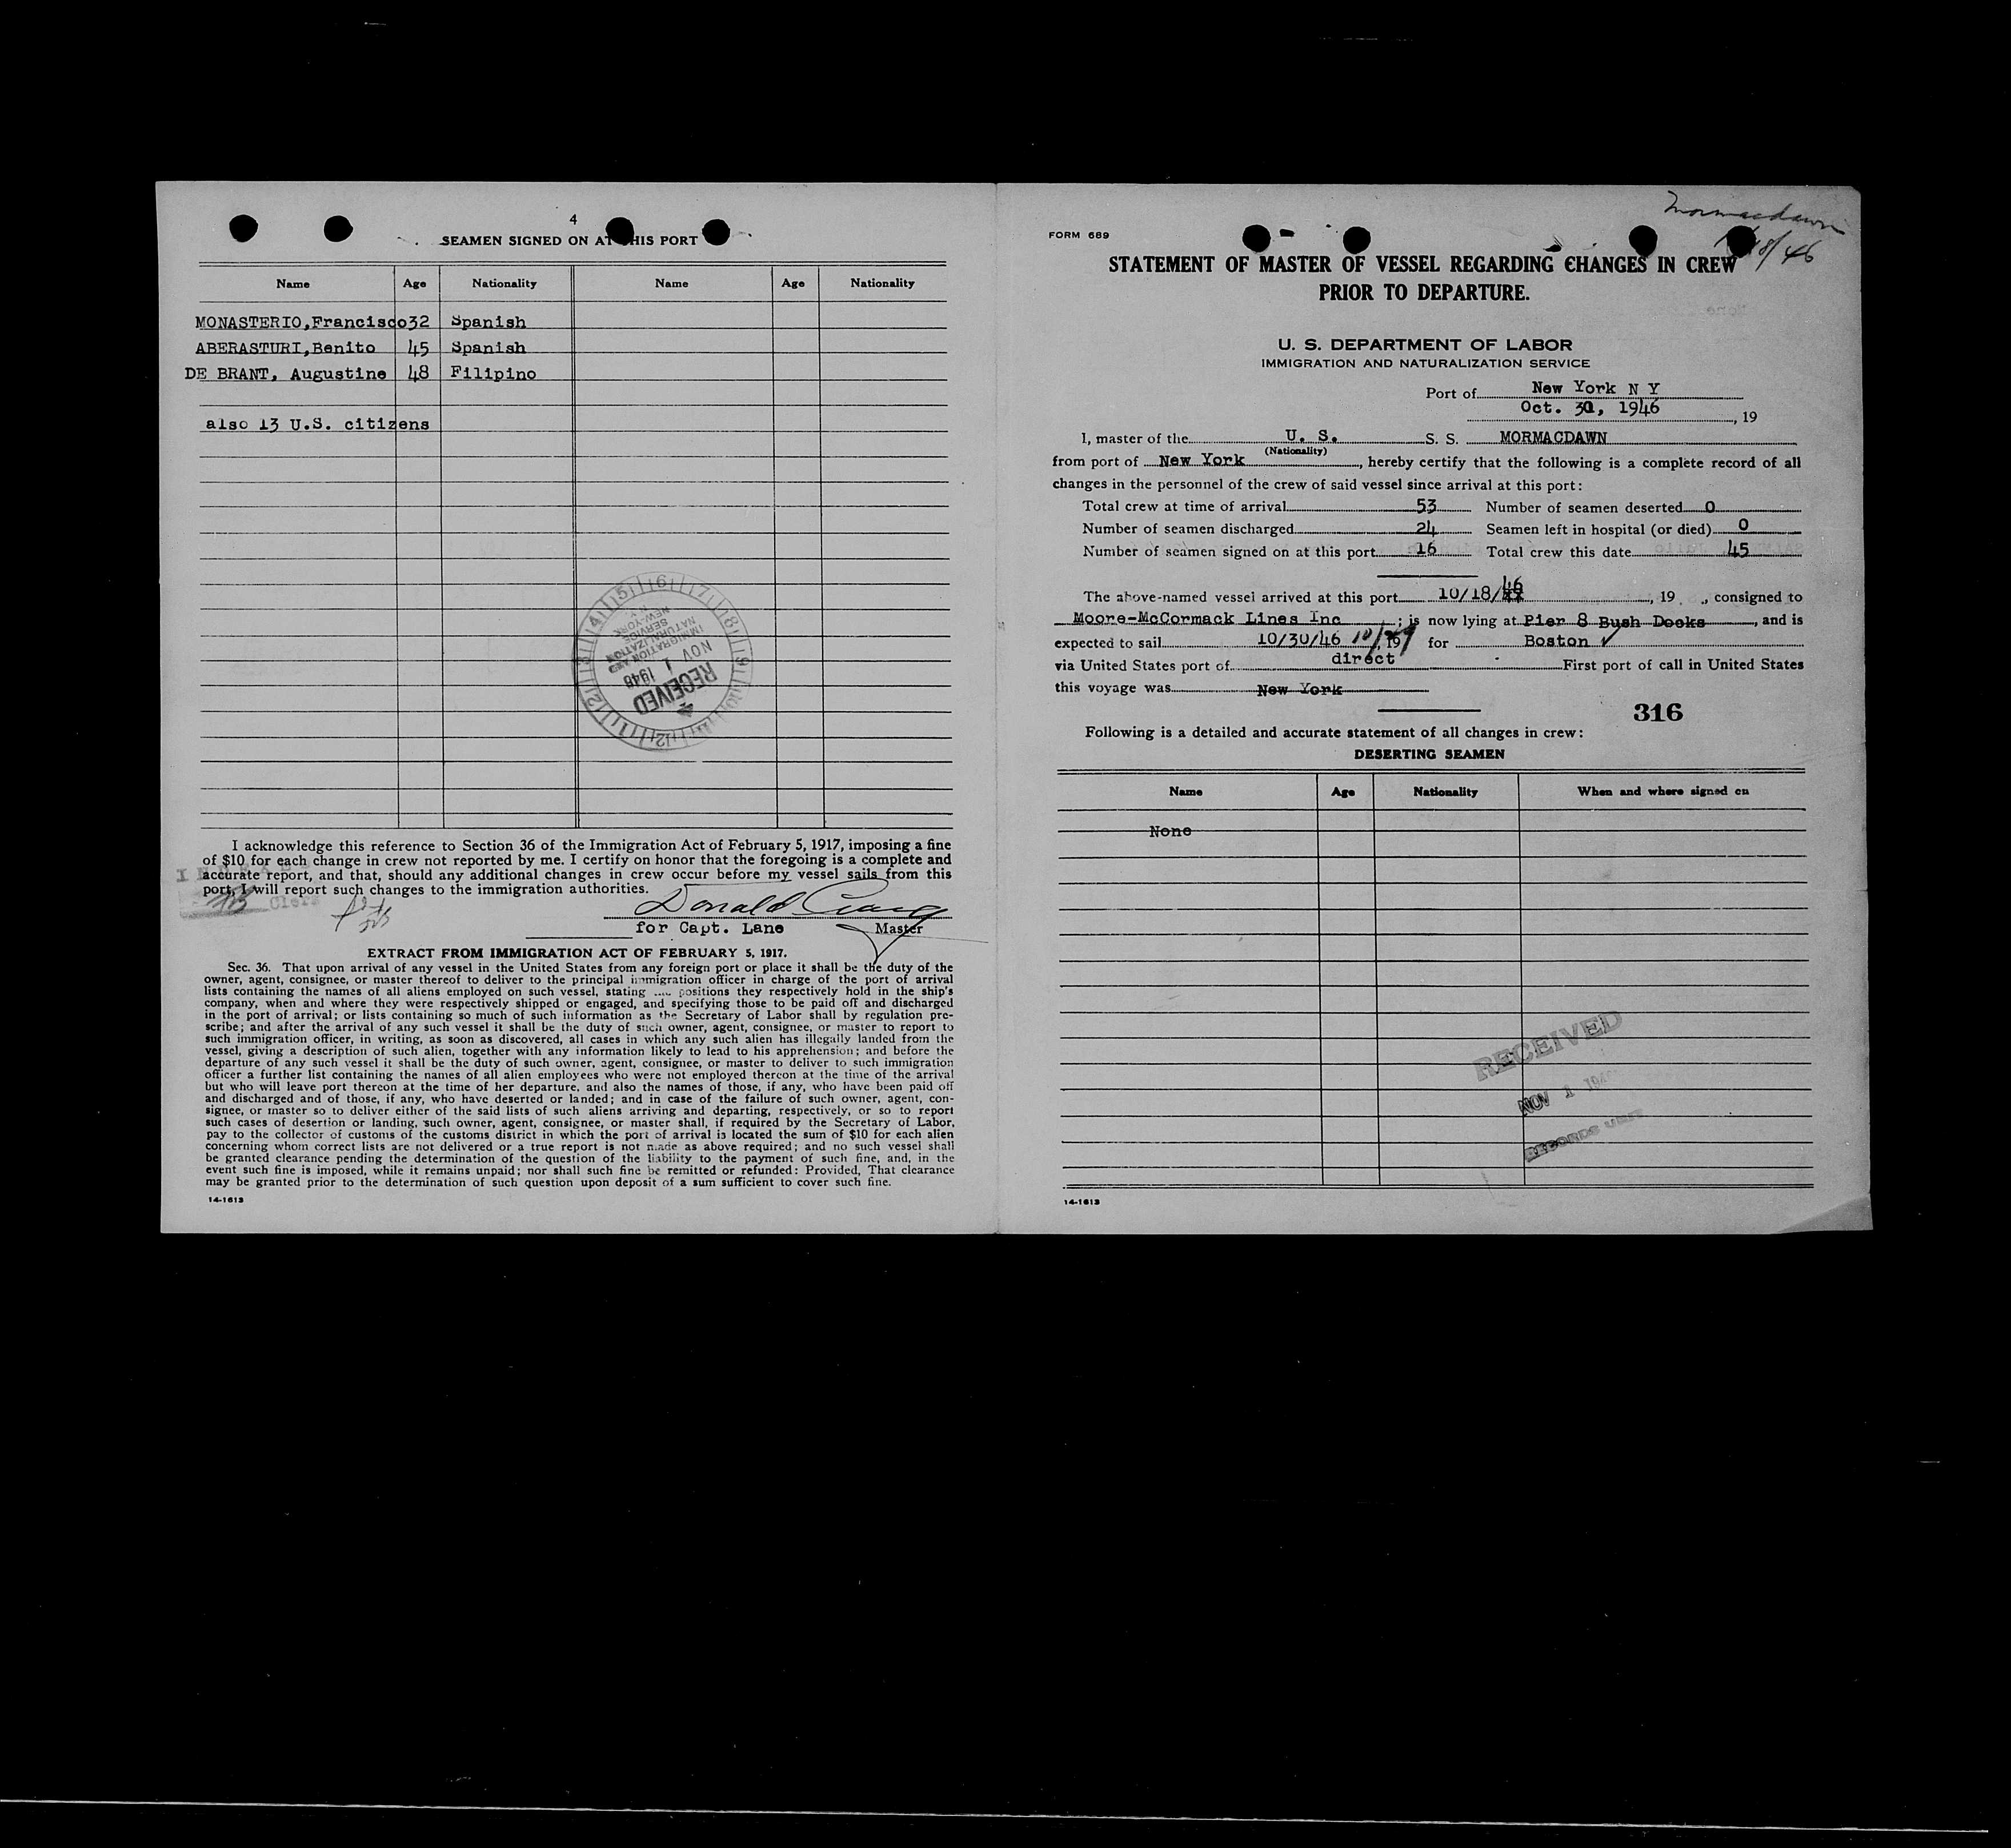 4
SEAMEN SIGNED ON AT THIS PORT
Name Age Nationality Name Age Nationality
MONASTERIO,Francisco 32 Spanish
ABERASTURI,Benito 45 Spanish
DE BRANT, Augustine 48 Filipino
also 13 U.S. citizens
RECEIVED
NOV 1 1946
IMMIGRATION AND
NATURALIZATION
SERVICE
NEW YORK
I acknowledge this reference to Section 36 of the Immigration Act of February 5, 1917, imposing a fine
of $10 for each change in crew not reported by me. I certify on honor that the foregoing is a complete and
accurate report, and that, should any additional changes in crew occur before my vessel sails from this
port, I will report such changes to the immigration authorities.
Clerk
Donald Craig
for Capt. Lane Master
EXTRACT FROM IMMIGRATION ACT OF FEBRUARY 5, 1917.
Sec. 36. That upon arrival of any vessel in the United States from any foreign port or place it shall be the duty of the
owner, agent, consignee, or master thereof to deliver to the principal immigration officer in charge of the port of arrival
lists containing the names of all aliens employed on such vessel, stating positions they respectively hold in the ship's
company, when and where they were respectively shipped or engaged, and specifying those to be paid off and discharged
in the port of arrival; or lists containing so much of such information as the Secretary of Labor shall by regulation pre-
scribe; and after the arrival of any such vessel it shall be the duty of such owner, agent, consignee, or master to report to
such immigration officer, in writing, as soon as discovered, all cases in which any such alien has illegally landed from the
vessel, giving a description of such alien, together with any information likely to lead to his apprehension; and before the
departure of any such vessel it shall be the duty of such owner, agent, consignee, or master to deliver to such immigration
officer a further list containing the names of all alien employees who were not employed thereon at the time of the arrival
but who will leave port thereon at the time of her departure, and also the names of those, if any, who have been paid off
and discharged and of those, if any, who have deserted or landed; and in case of the failure of such owner, agent, con-
signee, or master so to deliver either of the said lists of such aliens arriving and departing, respectively, or so to report
such cases of desertion or landing, such owner, agent, consignee, or master shall, if required by the Secretary of Labor,
pay to the collector of customs of the customs district in which the port of arrival is located the sum of $10 for each alien
concerning whom correct lists are not delivered or a true report is not made as above required; and no such vessel shall
be granted clearance pending the determination of the question of the liability to the payment of such fine, and, in the
event such fine is imposed, while it remains unpaid; nor shall such fine be remitted or refunded: Provided, That clearance
may be granted prior to the determination of such question upon deposit of a sum sufficient to cover such fine.
14-1613
Mormacdawn
18/46
FORM 689
STATEMENT OF MASTER OF VESSEL REGARDING CHANGES IN CREW
PRIOR TO DEPARTURE.
U. S. DEPARTMENT OF LABOR
IMMIGRATION AND NATURALIZATION SERVICE
Port of New York N Y
Oct. 30, 1946, 19
I, master of the U. S. S. S. MORMACDAWN
(Nationality)
from port of New York, hereby certify that the following is a complete record of all
changes in the personnel of the crew of said vessel since arrival at this port:
Total crew at time of arrival 53 Number of seamen deserted 0
Number of seamen discharged 24 Seamen left in hospital (or died) 0
Number of seamen signed on at this port 16 Total crew this date 45
The above-named vessel arrived at this port 10/18/46, 19 , consigned to
Moore-McCormack Lines Inc ; is now lying at Pier 8 Bush Docks, and is
expected to sail 10/30/46 10/29, 19 for Boston ✓
via United States port of direct First port of call in United States
this voyage was New York
316
Following is a detailed and accurate statement of all changes in crew:
DESERTING SEAMEN
Name Age Nationality When and where signed on
None
RECEIVED
NOV 1 194
RECORDS UNIT
14-1613